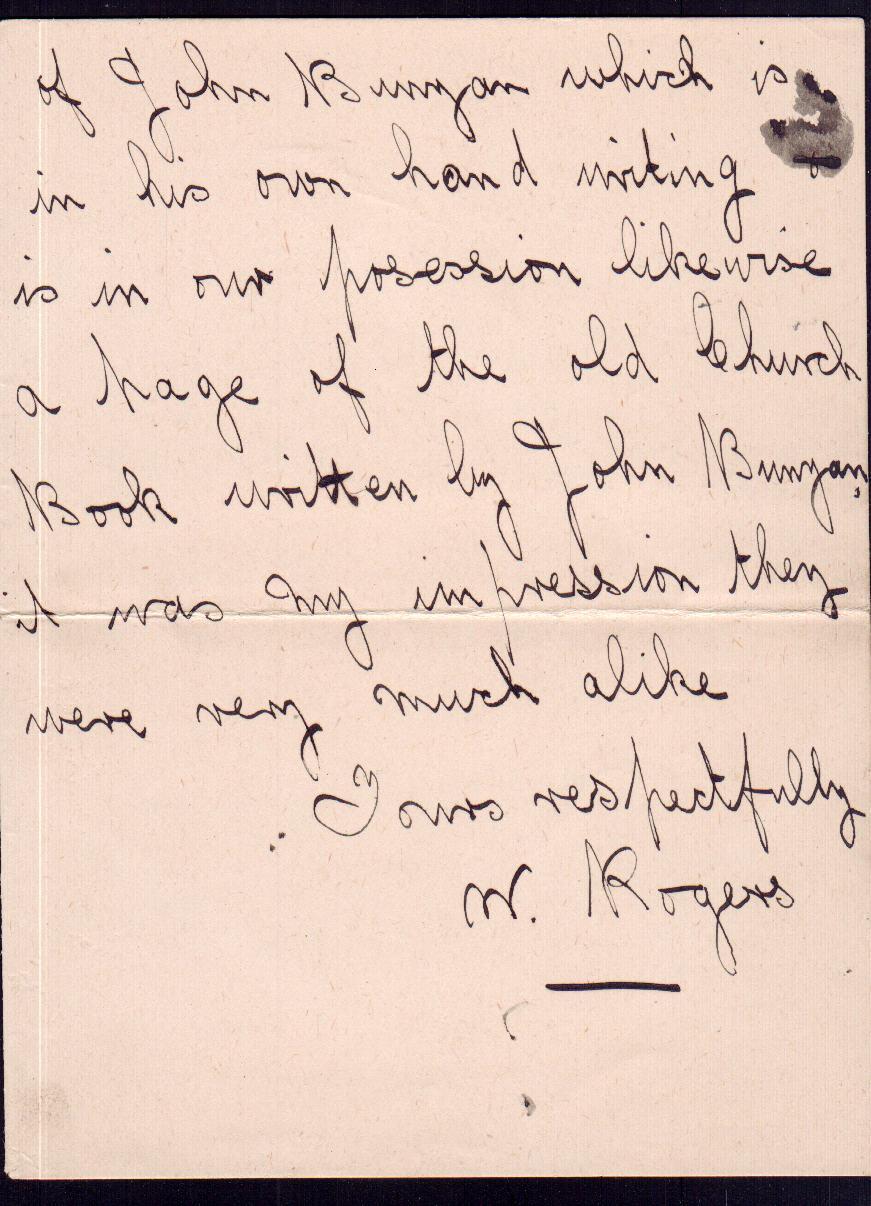 of John Bunyan which is
in his own hand writing &
is in our posession likewise
a page of the old Church
Book written by John Bunyan,
it was my impression they
were very much alike
Yours respectfully
W. Rogers